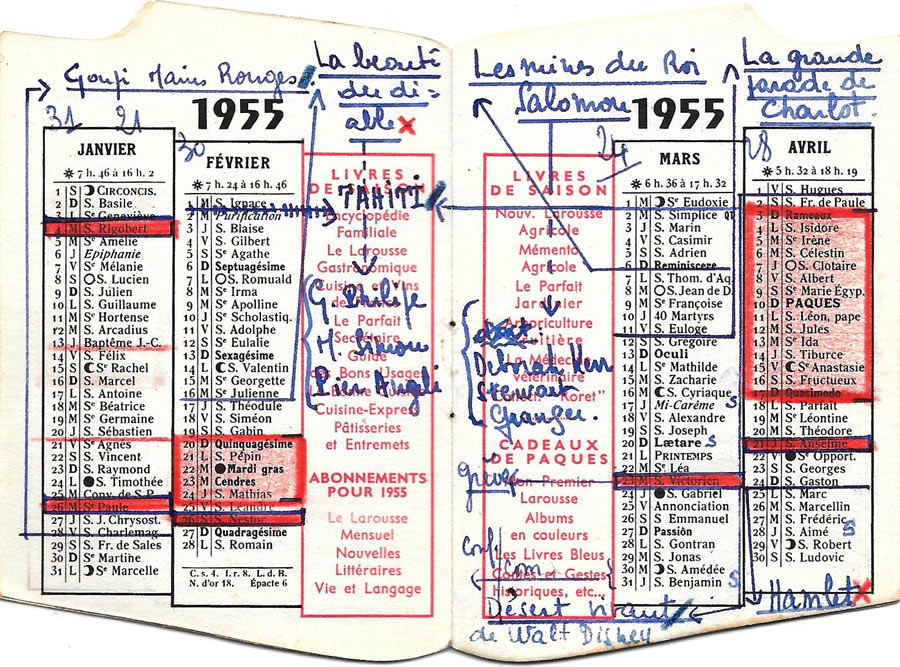 Goupi Mains Rouges
La beauté
du di-
able x
31 21
30
1955
JANVIER
7 h. 46 à 16 h. 2
1 S CIRCONCIS.
2 D S. Basile
3 L Se Geneviève
4 M S. Rigobert
5 M Se Amélie
6 J Epiphanie
7 V Se Mélanie
8 S S. Lucien
9 D S. Julien
10 L S. Guillaume
11 M Se Hortense
12 M S. Arcadius
13 J Baptême J.-C.
14 V S. Félix
15 S Se Rachel
16 D S. Marcel
17 L S. Antoine
18 M Se Béatrice
19 M Se Germaine
20 J S. Sébastien
21 V Se Agnès
22 S S. Vincent
23 D S. Raymond
24 L S. Timothée
25 M Conv. de S. P.
26 M Se Paule
27 J S. J. Chrysost.
28 V S. Charlemag.
29 S S. Fr. de Sales
30 D Se Martine
31 L Se Marcelle
FÉVRIER
7 h. 24 à 16 h. 46
1 M S. Ignace
2 M Purification
3 J S. Blaise
4 V S. Gilbert
5 S Se Agathe
6 D Septuagésime
7 L S. Romuald
8 M Se Irma
9 M Se Apolline
10 J Se Scholastiq.
11 V S. Adolphe
12 S Se Eulalie
13 D Sexagésime
14 L S. Valentin
15 M Se Georgette
16 M Se Julienne
17 J S. Théodule
18 V S. Siméon
19 S S. Gabin
20 D Quinquagésime
21 L S. Pépin
22 M Mardi gras
23 M Cendres
24 J S. Mathias
25 V S. Léandre
26 S S. Nestor
27 D Quadragésime
28 L S. Romain
C. s. 4. I. r. 8. L. d. B.
N. d'or 18. Epacte 6
LIVRES
DE SAISON
TAHITI
Encyclopédie
Familiale
Le Larousse
Gastronomique
Cuisine et Vins
Le Parfait
Secrétaire
Guide
des Bons Usages
Cuisine-Express
Pâtisseries
et Entremets
G. Philipe
M. Simon
Pier Angeli
ABONNEMENTS
POUR 1955
Le Larousse
Mensuel
Nouvelles
Littéraires
Vie et Langage
Les mines du Roi
Salomon
La grande
parade de
Charlot.
24
28
1955
LIVRES
DE SAISON
Nouv. Larousse
Agricole
Mémento
Agricole
Le Parfait
Jardinier
Arboriculture
fruitière
Le Médecin
vétérinaire
Koret"
Deborah Kerr
Stewart
Granger.
CADEAUX
DE PAQUES
Mon Premier
Larousse
Albums
en couleurs
Les Livres Bleus
Contes et Gestes
historiques, etc..
Désert vivant
de Walt Disney
MARS
6 h. 36 à 17 h. 32
1 M Se Eudoxie
2 M S. Simplice QT
3 J S. Marin
4 V S. Casimir
5 S S. Adrien
6 D Reminiscere
7 L S. Thom. d'Aq.
8 M S. Jean de D.
9 M Se Françoise
10 J 40 Martyrs
11 V S. Euloge
12 S S. Grégoire
13 D Oculi
14 L Se Mathilde
15 M S. Zacharie
16 M S. Cyriaque
17 J Mi-Carême S
18 V S. Alexandre
19 S S. Joseph
20 D Lætare S
21 L PRINTEMPS
22 M Se Léa
23 M S. Victorien
24 J S. Gabriel
25 V Annonciation
26 S S. Emmanuel
27 D Passion
28 L S. Gontran
29 M S. Jonas
30 M S. Amédée
31 J S. Benjamin S
AVRIL
5 h. 32 à 18 h. 19
1 V S. Hugues
2 S S. Fr. de Paule
3 D Rameaux
4 L S. Isidore
5 M Se Irène
6 M S. Célestin
7 J S. Clotaire
8 V S. Albert
9 S Se Marie Egyp.
10 D PAQUES
11 L S. Léon, pape
12 M S. Jules
13 M Se Ida
14 J S. Tiburce
15 V Se Anastasie
16 S S. Fructueux
17 D Quasimodo
18 L S. Parfait
19 M Se Léontine
20 M S. Théodore
21 J S. Anselme
22 V Se Opport.
23 S S. Georges
24 D S. Gaston
25 L S. Marc
26 M S. Marcellin
27 M S. Frédéric
28 J S. Aimé S
29 V S. Robert
30 S S. Ludovic
Hamlet x